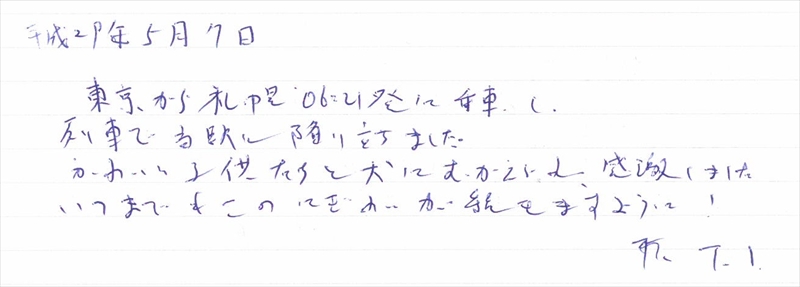 平成29年5月7日
東京から札幌06:21発に乗車し、
列車で当駅に降り立ちました
かわいい子供たちと犬にむかえられ、感激しました
いつまでもこのにぎわいが続きますように!
東京 T.I.